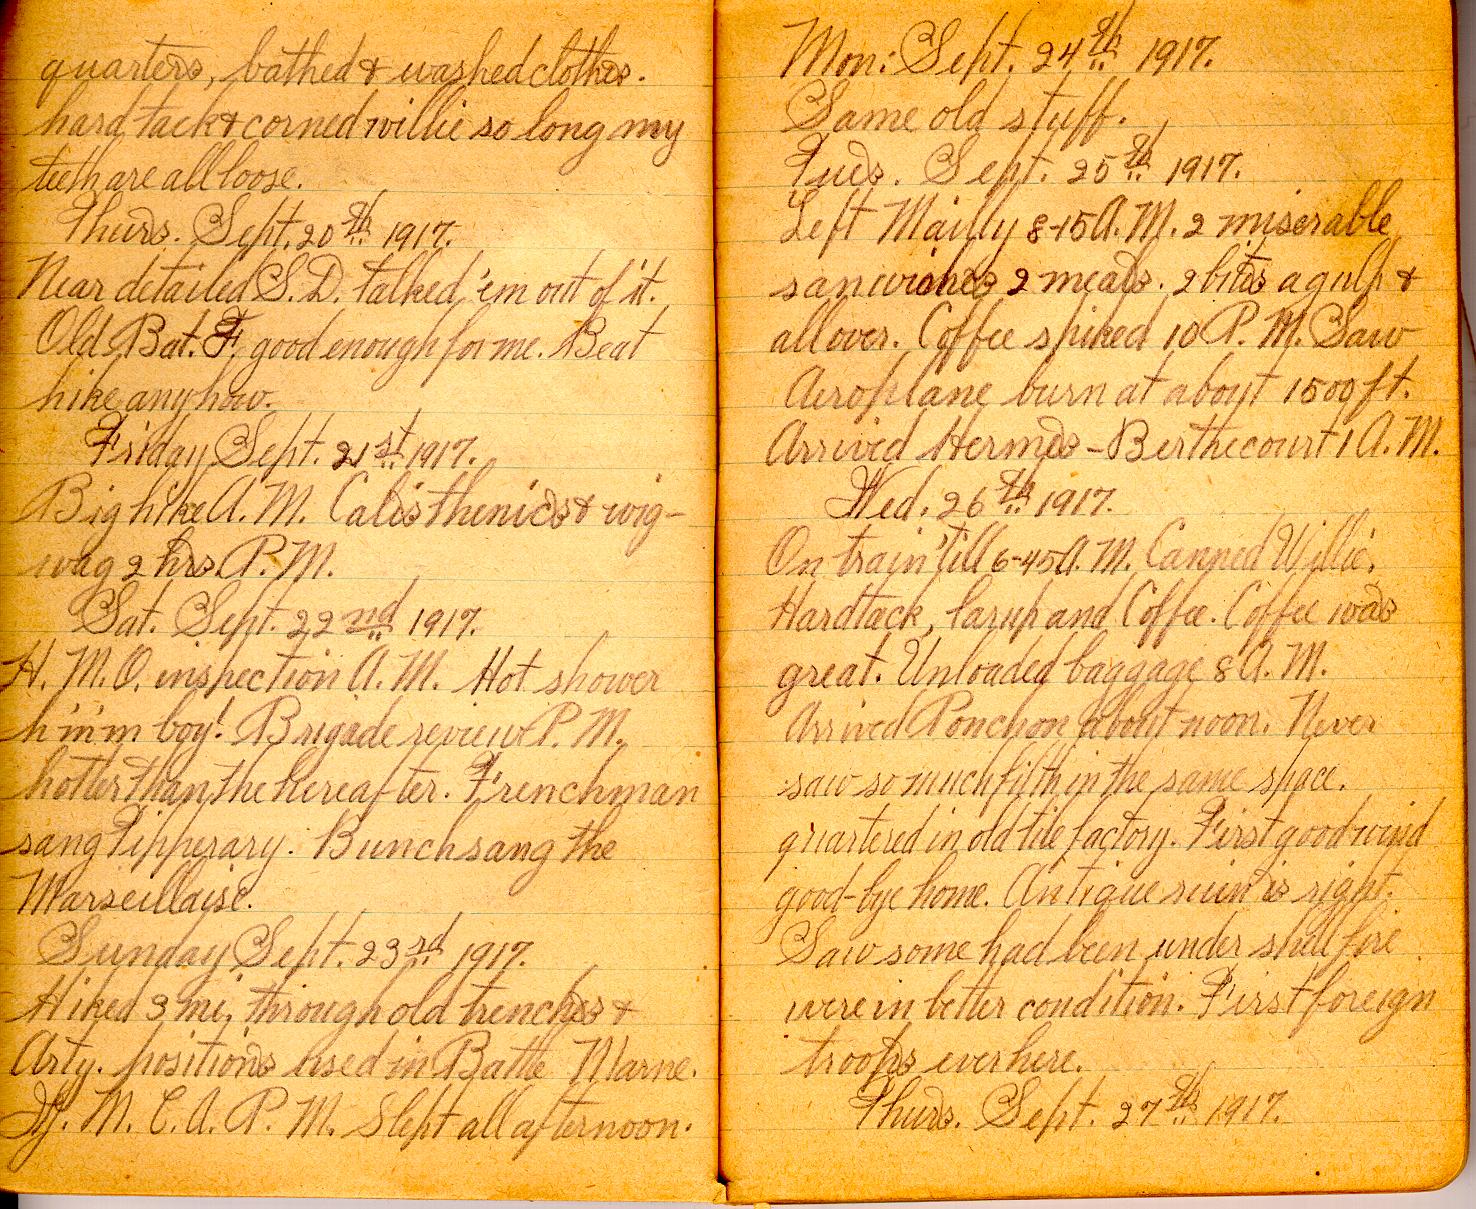 quarters, bathed & washed clothes.
hard tack & corned willie so long my
teeth are all loose.
Thurs. Sept. 20th 1917.
Near detailed S.D. talked 'em out of it.
Old Bat. F. good enough for me. Beat
hike anyhow.
Friday Sept. 21st 1917.
Big hike A.M. Calisthenics & wig-
wag 2 hrs. P.M.
Sat. Sept. 22nd 1917.
H. M.O. inspection A.M. Hot shower
h'm'm boy! Brigade review P.M.
hotter than the hereafter. Frenchman
sang Tipperary. Bunch sang the
Marseillaise.
Sunday Sept. 23rd 1917.
Hiked 3 mi. through old trenches &
Arty. positions used in Battle Marne.
Y. M. C. A. P. M. Slept all afternoon.
Mon: Sept. 24th 1917.
Same old stuff.
Tues. Sept. 25th 1917.
Left Mailly 8-15 A.M. 2 miserable
sanwiches 2 meals. 2 bites a gulp &
all over. Coffee spiked 10 P.M. Saw
Aeroplane burn at about 1500 ft.
Arrived Hermes-Berthecourt 1 A.M.
Wed. 26th 1917.
On train 'till 6-45 A.M. Canned Willie.
Hardtack, larup and Coffee. Coffee was
great. Unloaded baggage 8 A.M.
Arrived Ponchon about noon. Never
saw so much filth in the same space.
quartered in old tile factory. First good wind
good-bye home. Antique ruin is right.
Saw some had been under shell fire
were in better condition. First foreign
troops ever here.
Thurs. Sept. 27th 1917.